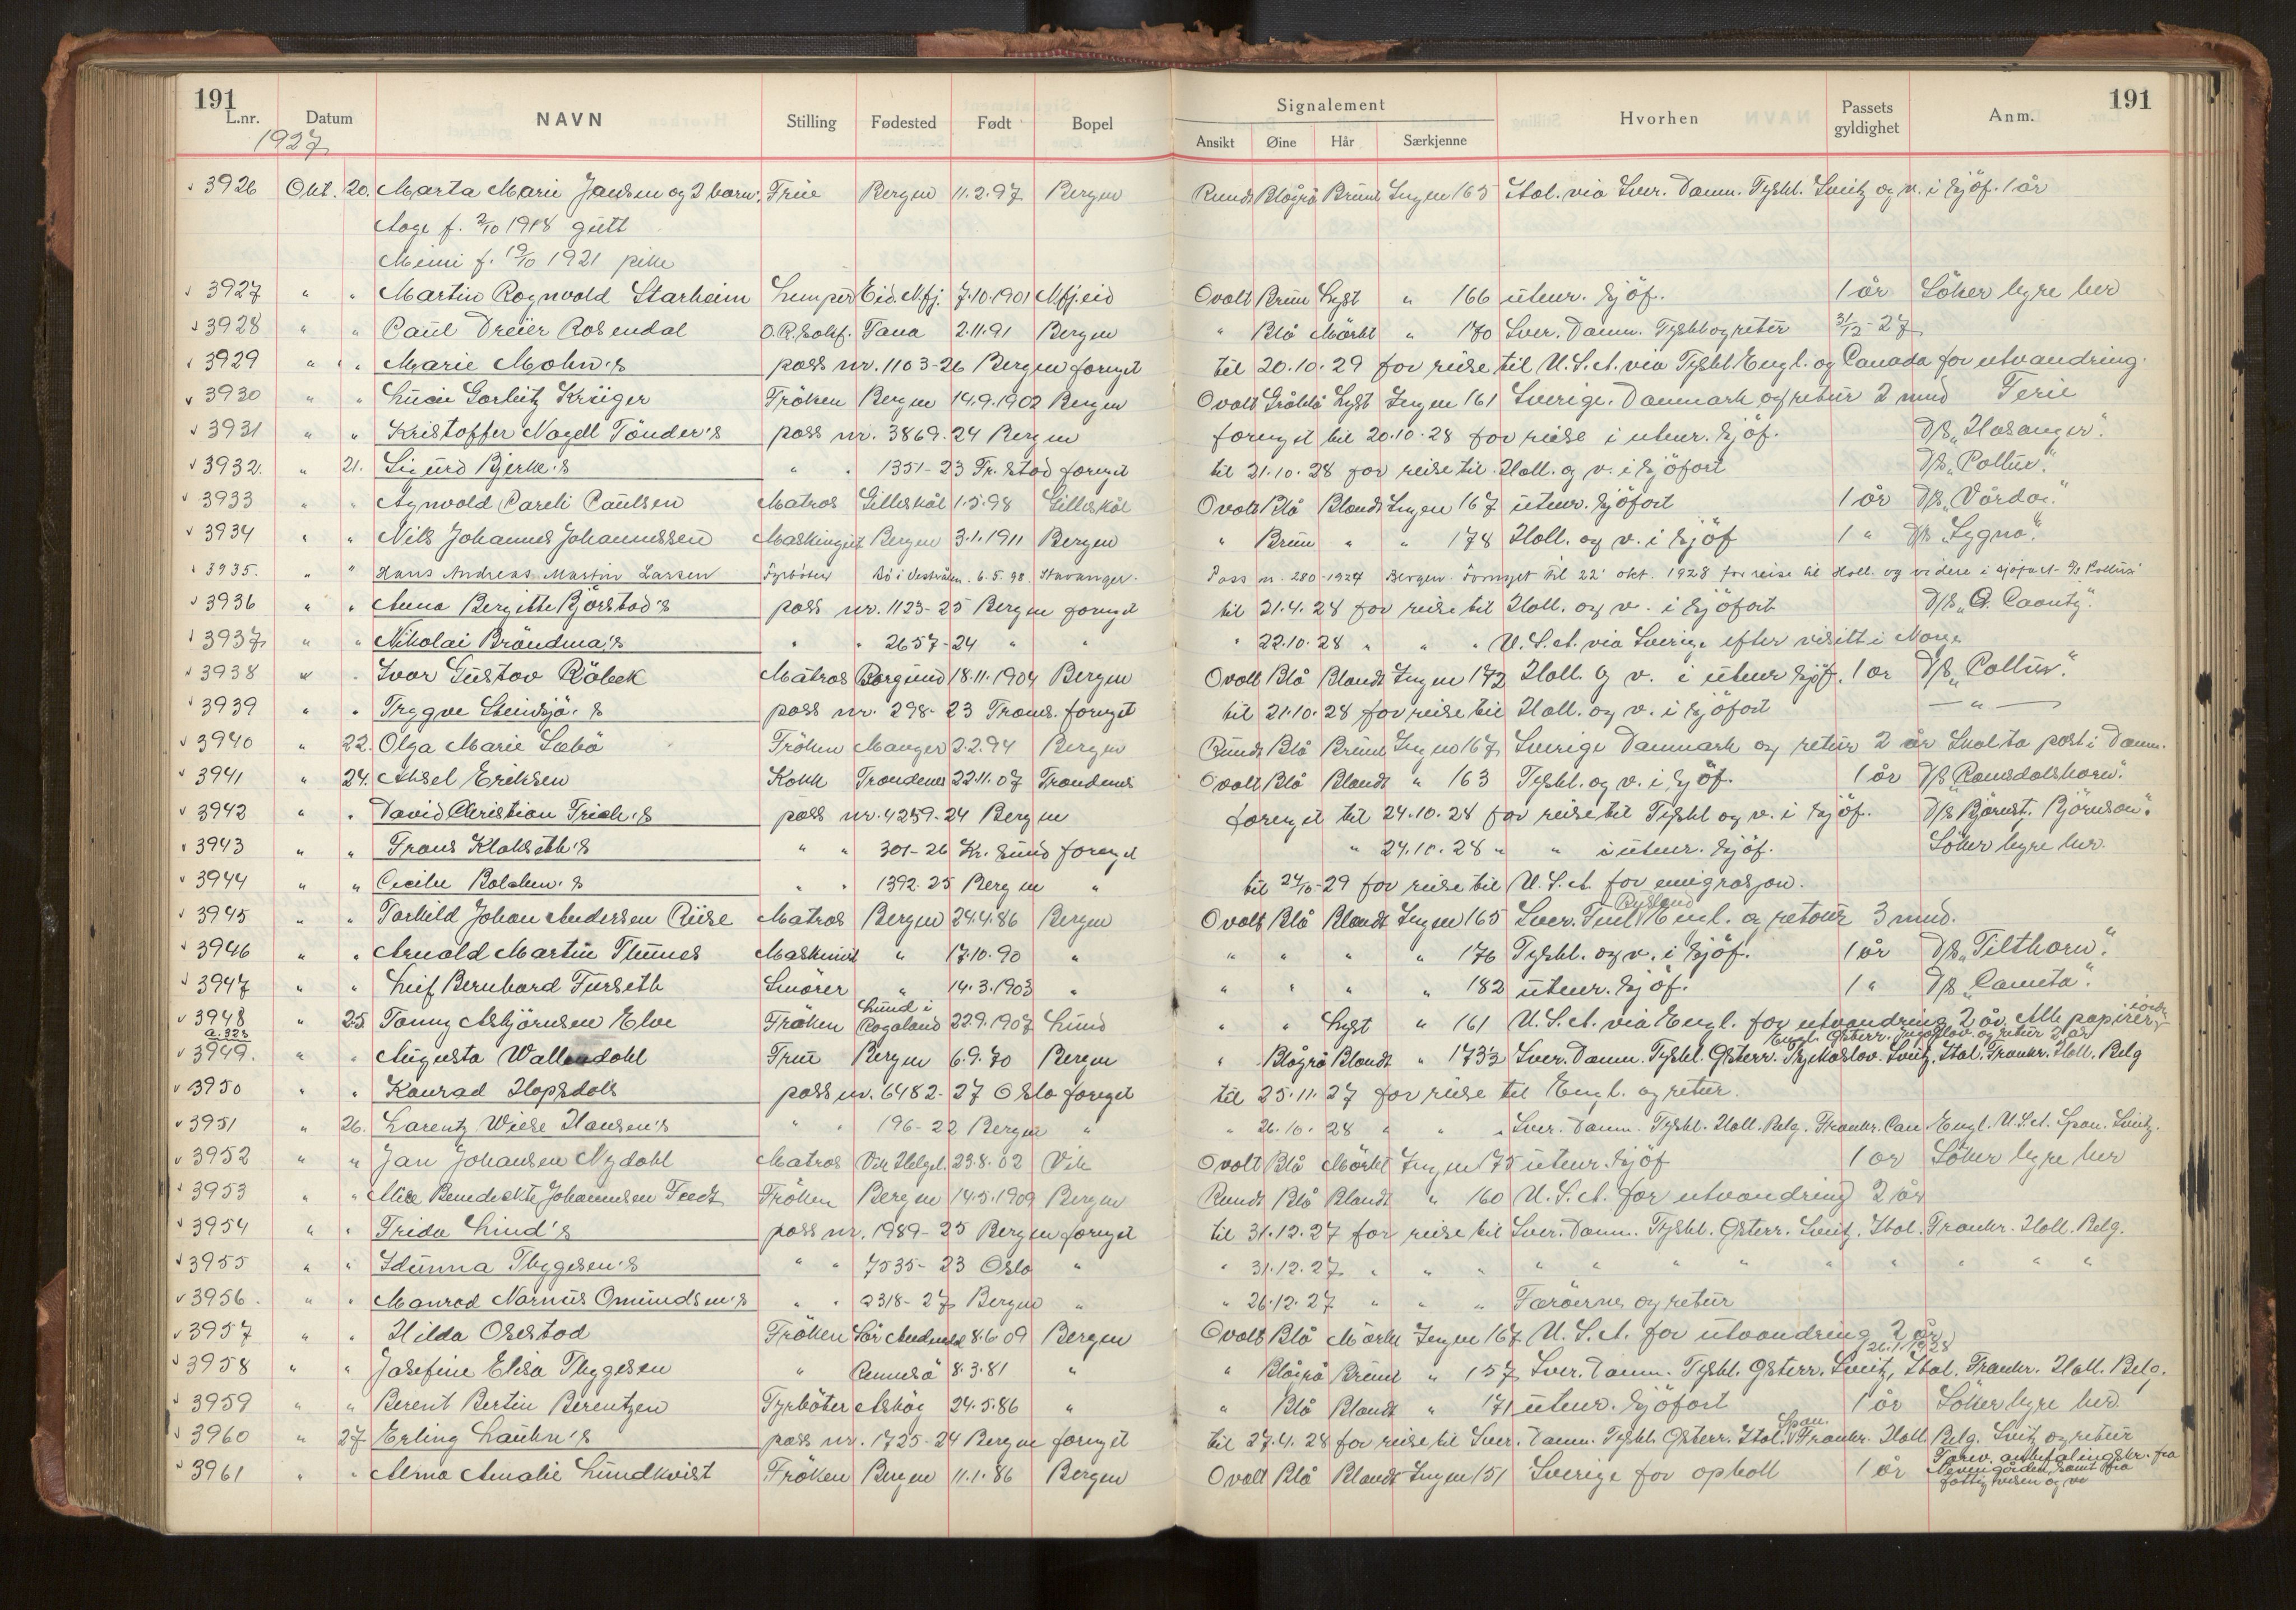 191
L.nr. Datum NAVN Stilling Fødested Født Bopel
1927
Signalement Hvorhen Passets gyldighet Anm. 191
Ansikt Øine Hår Særkjenne
3926 Okt. 20. Marta Marie Jansen og 2 barn: Frue Bergen 11.2.97 Bergen Rundt Blågrå Brunt Ingen 165 Ital. via Sver. Danm. Tyskl. Sveitz og v. i sjöf. 1 år
Aage f. 2/10 1918 gutt
Mimi f. 19/10 1921 pike
3927 " " Martin Rognvald Starheim Lemper Eid N.fj. 7.10.1901 Nfjeid Ovalt Brun Lyst " 166 utenr. Sjöf. 1 år Söker hyre her
3928 " " Paul Dreier Rosendal O.R.sakf. Fana 2.11.91 Bergen " Blå Mörkt " 170 Sver. Danm. Tyskl og retur 31/12-27
3929 " " Marie Mohn's pass nr. 1103-26 Bergen fornyet til 20.10.29 for reise til U.S.A. via Tyskl. Engl. og Canada for utvandring.
3930 " " Lucie Gorlitz Krüger Fröken Bergen 19.9.1902 Bergen Ovalt Gråblå Lyst Ingen 161 Sverige. Danmark og retur 2 mnd Ferie
3931 " " Kristoffer Nagell Tönder's pass nr. 3869-24 Bergen fornyet til 20.10.28 for reise i utenr. sjöf. D/S "Hosanger".
3932. " 21. Sigurd Bjerke's " " 1351-23 Fr.stad fornyet til 21.10.28 for reise til Holl. og v. i Sjöfart D/S "Pollux".
3933 " " Agnvald Pareli Paulsen Matros Gilleskål 1.5.98 Gilleskål Ovalt Blå Blondt Ingen 167 utenr. Sjöfart 1 år D/S "Vårdal".
3934 " " Nils Johannes Johannessen Maskingut Bergen 3.1.1911 Bergen " Brun " " 178 Holl. og v. i Sjöf 1 " D/S "Sygna".
3935. " " Hans Andreas Martin Larsen Fyrböter Bö i Vesterålen. 6.5.98. Stavanger. Pass nr. 280-1924 Bergen. Fornyet til 22' okt. 1928 for reise til Holl. og videre i sjöfart D/S Pollux"
3936 " " Anna Bergitte Björstad's pass nr. 1123-25 Bergen fornyet til 21.4.28 for reise til Holl. og v. i Sjöfart
3937 " " Nikolai Brandma's " " 2657-24 " " " 22.10.28 " " " U.S.A. via Sverige efter visitt i Norge
3938 " " Ivar Gustav Råbek Matros Borgund 18.11.1904 Bergen Ovalt Blå Blondt Ingen 172 Holl. og v. i utenr Sjöf. 1 år D/S "Pollux".
3939 " " Trygve Steinsjö's pass nr. 298-23 Troms. fornyet til 21.10.28 for reise til Holl. og v. i Sjöfart — " —
3940 " 22. Olga Marie Sæbö Fröken Manger 2.2.94 Bergen Rundt Blå Brunt Ingen 167 Sverige Danmark og retur 2 år Skal ta post i Danm.
3941 " 24. Aksel Eriksen Kokk Trondenes 22.11.07 Trondenes Ovalt Blå Blondt " 163 Tyskl. og v. i Sjöf. 1 år D/S "Romsdalshorn".
3942 " " David Christian Frich's pass nr. 4259-24 Bergen fornyet til 24.10.28 for reise til Tyskl og v. i Sjöf. D/S "Björnst. Björnson".
3943 " " Frans Klokseth's " " 301-26 Kr.sund fornyet " 24.10.28 " " i utenr. Sjöf. Söker hyre her.
3944 " " Cecilie Bolchen's " " 1392-25 Bergen " til 24/10-29 for reise til U.S.A. for emigrasjon.
3945 " " Torkild Johan Andersen Riise Matros Bergen 24.4.86 Bergen Ovalt Blå Blondt Ingen 165 Sver. Finl Rusland Engl. og retour 3 mnd.
3946 " " Arnold Martin Thunes Maskinist " 17.10.90 " " " " " 176 Tyskl. og v. i Sjöf. 1 år D/S "Tilthorn".
3947 " " Leif Bernhard Furseth Smörer " 14.3.1903 " " " " " 182 utenr. Sjöf. 1 " D/S "Cometa".
3948 " 25. Tonny Asbjörnsen Elve Fröken Lund i Rogaland 22.9.1907 Lund " " Lyst " 161 U.S.A. via Engl. for utvandring 2 år. Alle papirer i orden
a. 328 Engl. Österr. Jugoslav. og retur 2 år
3949. " " Augusta Wallendahl Frue Bergen 6.9.70 Bergen " Blågrå Blondt " 173½ Sver. Danm. Tyskl. Österr. Tsjekoslov. Sveitz. Ital. Frankr. Holl. Belg
3950 " " Konrad Hopsdals pass nr. 6482-27 Oslo fornyet til 25.11.27 for reise til Engl. og retur.
3951 " 26. Larentz Wiese Hansen's " " 196-22 Bergen " " 26.10.28 " " " Sver. Danm. Tyskl. Holl. Belg. Frankr. Can Engl. U.S.A. Span. Sveitz.
3952 " " Jan Johansen Nydahl Matros Vik Helgel. 23.8.02 Vik Ovalt Blå Mörkt Ingen 175 utenr. Sjöf 1 år Söker hyre her
3953 " " Alice Benedikte Johannesen Fredt Fröken Bergen 14.5.1909 Bergen Rundt Blå Blondt " 160 U.S.A. for utvandring 2 år
3954 " " Frida Lind's pass nr. 1989-25 Bergen fornyet til 31.12.27 for reise til Sver. Danm. Tyskl. Österr. Sveitz. Ital. Frankr. Holl. Belg.
3955 " " Idunna Thygesen's " " 7535-23 Oslo " " 31.12.27 " " " " " " " " " " " "
3956. " " Manrad Narnius Omundsen's " " 2318-27 Bergen " " 26.12.27 " " " Færöerne og retur
3957 " " Hilda Orestad Fröken Sör Audnedal 8.6.09 Bergen Ovalt Blå Mörkt Ingen 167 U.S.A. for utvandring 2 år
3958 " " Josefine Elisa Thygesen " Rennesö 8.3.81 " " Blågrå Brunt " 157 Sver. Danm. Tyskl. Österr. Sveitz, Ital. Frankr. Holl. Belg. 26.1.1928
3959 " " Berent Bertin Berentzen Fyrböter Asköy 24.5.86 " " Blå Blondt " 171 utenr. Sjöfart 1 år Söker hyre her.
3960 " 27 Erling Lauhn's pass nr. 1725-24 Bergen fornyet til 27.4.28 for reise til Sver. Danm. Tyskl. Österr. Ital. Span. Frankr. Holl. Belg. Sveitz og retur
3961 " " Alma Amalie Lundkvist Fröken Bergen 11.1.86 Bergen Ovalt Blå Blondt Ingen 151 Sverige for ophold 1 år Forev. anbefalingskr. fra
Nevengården, samt fra
fattigvesen og